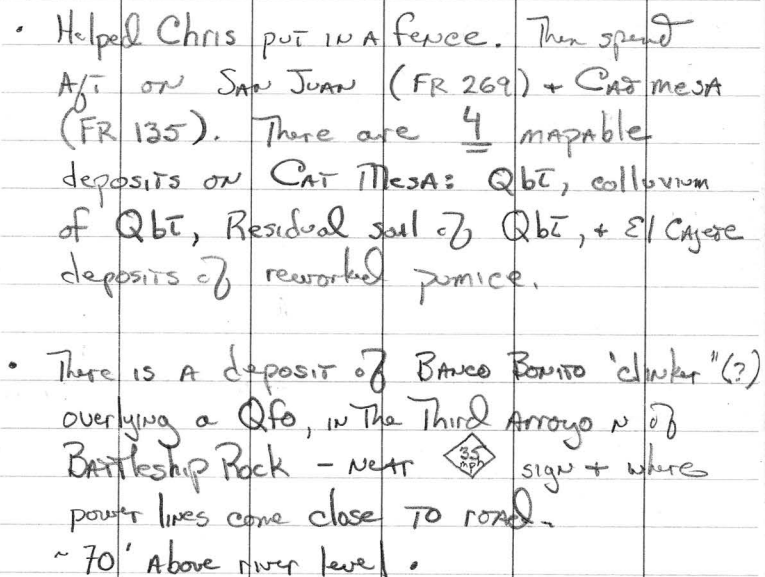 • Helped Chris put in a fence. Then spend
A/T on San Juan (FR 269) + Cat mesa
(FR 135). There are 4 mapable
deposits on Cat Mesa: Qbt, colluvium
of Qbt, Residual soil of Qbt, + El Cajete
deposits of reworked pumice.
• There is a deposit of Banco Bonito 'clinker" (?)
overlying a Qfo, in the Third Arroyo N of
Battleship Rock - near 35 mph sign + where
power lines come close to road.
~ 70' Above river level.